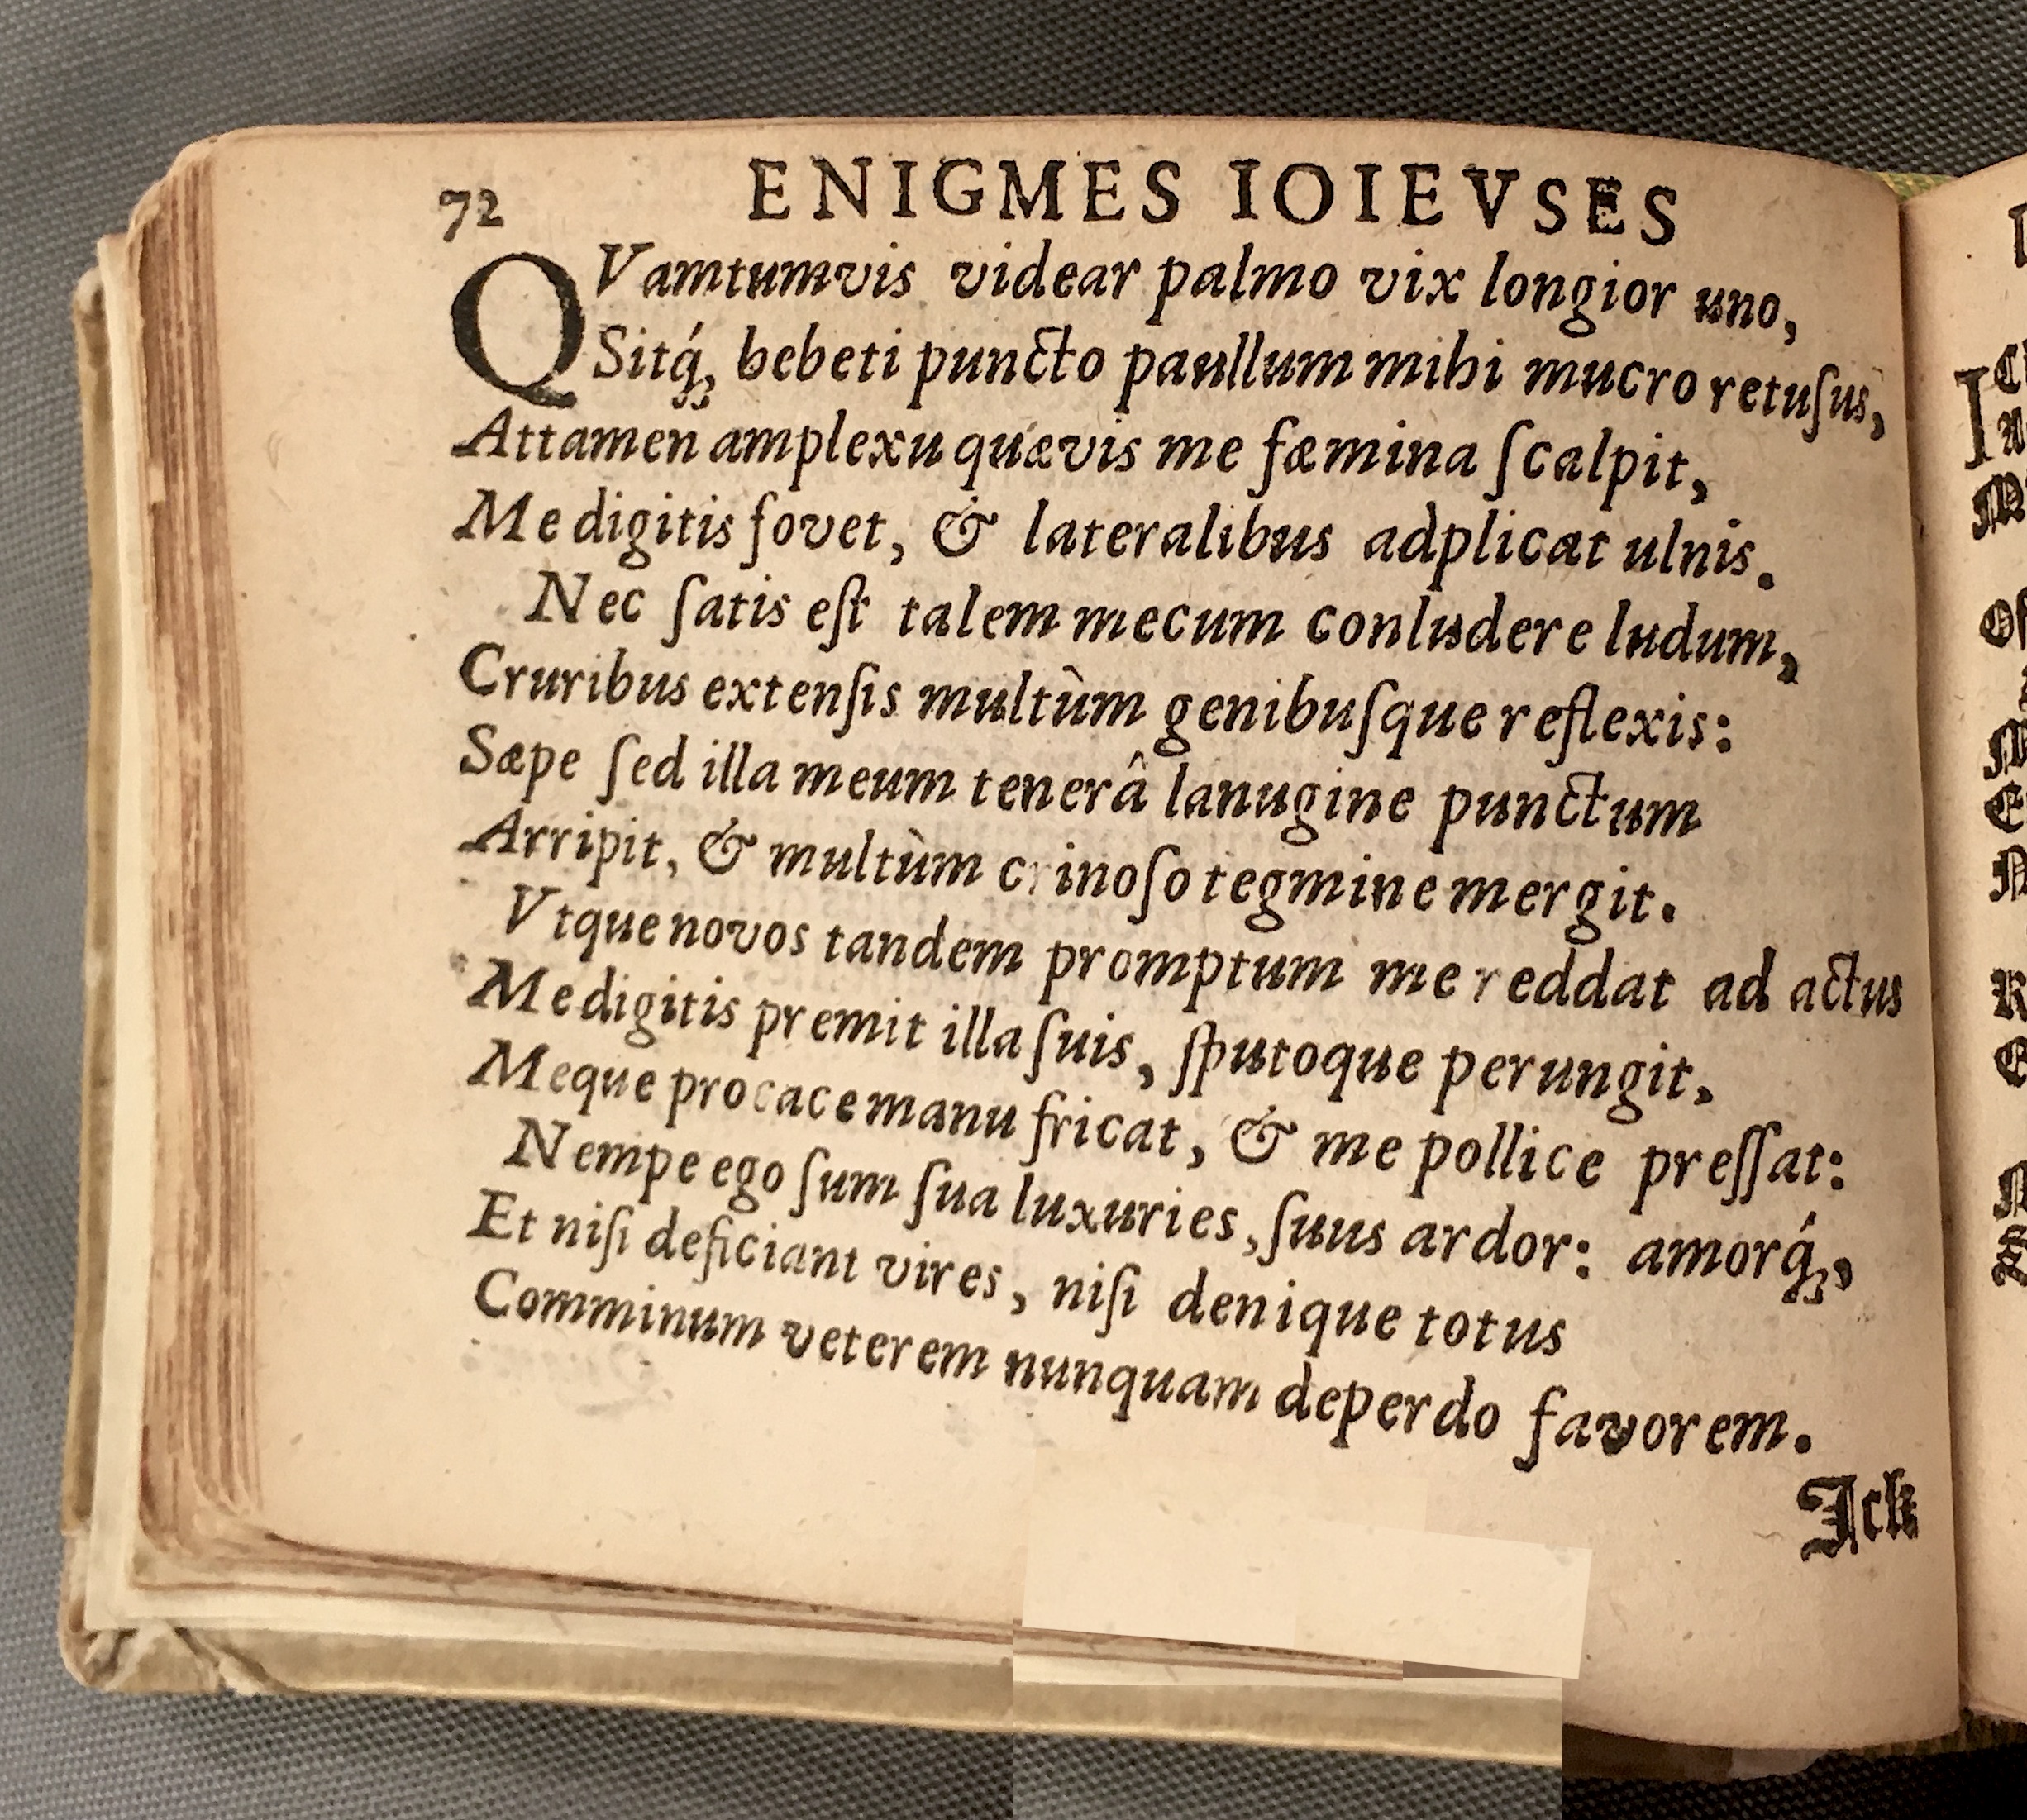 72 ENIGMES IOIEVSES
QVamtumvis videar palmo vix longior uno,
Sitq́;, bebeti puncto paullum mihi mucro retuſus,
Attamen amplexu quævis me fæmina ſcalpit,
Me digitis fovet, & lateralibus adplicat ulnis.
Nec ſatis eſt talem mecum conludere ludum,
Cruribus extenſis multùm genibuſque reflexis:
Sæpe ſed illa meum tenerâ lanugine punctum
Arripit, & multùm crinoſo tegmine mergit.
Vtque novos tandem promptum me reddat ad actus
Me digitis premit illa ſuis, ſputoque perungit.
Meque procace manu fricat, & me pollice preſſat:
Nempe ego ſum ſua luxuries, ſuus ardor: amorq́;,
Et niſi deficiant vires, niſi denique totus
Comminum veterem nunquam deperdo favorem.
Ick